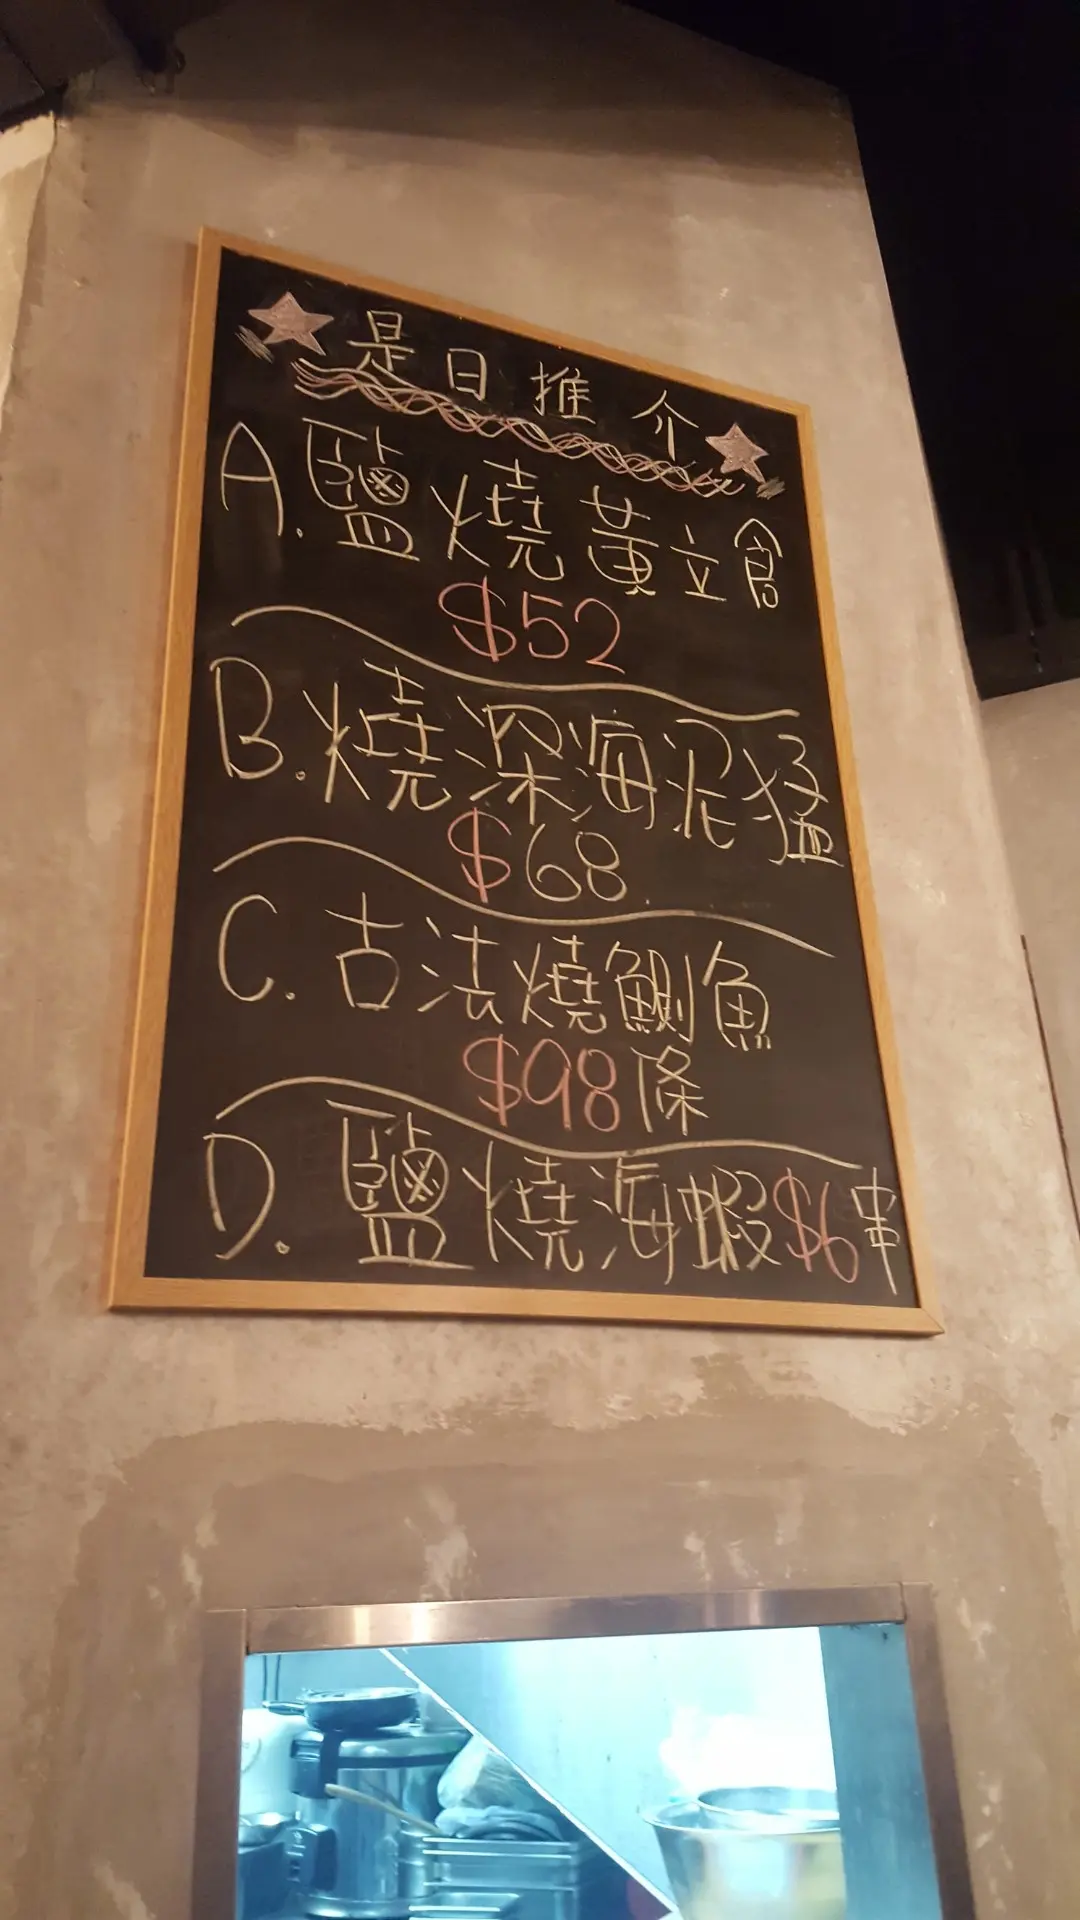 是日推介
A. 鹽燒黃立倉
$52
B. 燒深海泥猛
$68
C. 古法燒鰂魚
$98條
D. 鹽燒海蝦$6串